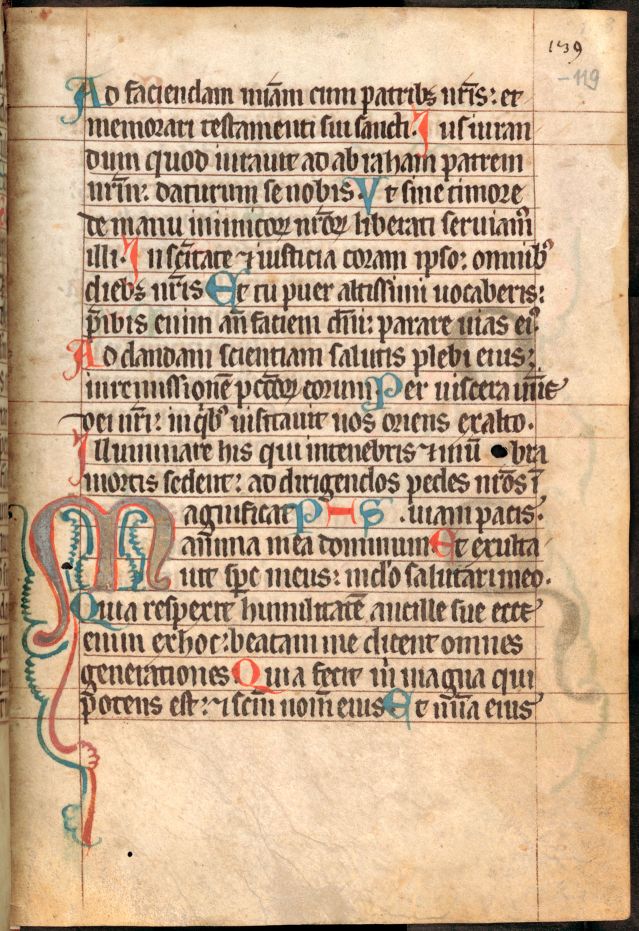 139
-119
Ad faciendam miam cum patribꝫ nris: et
memorari testamenti sui sancti. Jusiuran
dum quod iurauit ad abraham patrem
nrm: daturum se nobis. Ut sine timore
de manu inimicoꝝ nroꝝ liberati seruiam
illi. Jn scitate ⁊ iusticia coram ipso: omnibꝰ
diebꝫ nris Et tu puer altissimi uocaberis:
pibis enim an faciem dni: parare uias eiꝰ.
Ad dandam scientiam salutis plebi eius:
in remissionē pctoꝝ eorum Per uiscera mie
dei nri: in qibꝰ uisitauit nos oriens ex alto.
Jlluminare his qui in tenebris ⁊ in ū bra
mortis sedent: ad dirigendos pedes nros ī
agnificat PHS . uiam pacis.
M anima mea dominum Et exulta
uit spc meus: in do salutari meo.
Quia respexit humilitatē ancille sue ecce
enim ex hoc: beatam me dicent omnes
generationes Quia fecit m magna qui
potens est: ⁊ scm nom eius Et mia eius